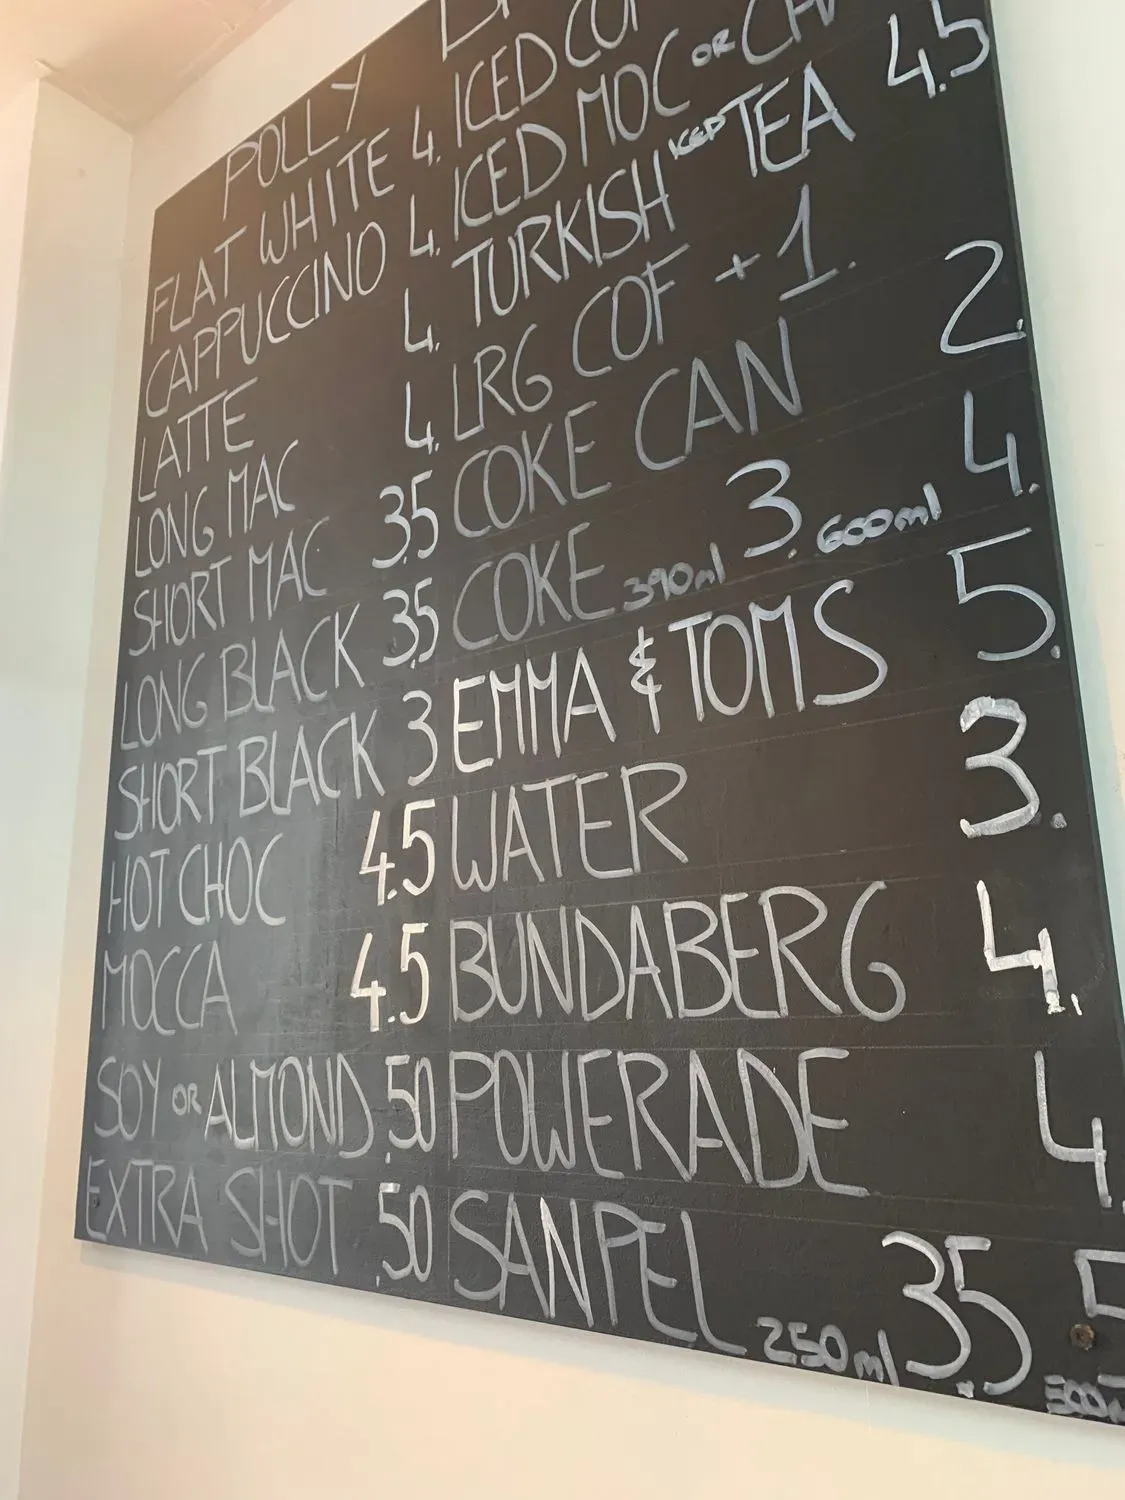 POLLY
FLAT WHITE 4.
CAPPUCCINO 4.
LATTE 4.
LONG MAC 4.
SHORT MAC 3.5
LONG BLACK 3.5
SHORT BLACK 3
HOT CHOC 4.5
MOCCA 4.5
SOY OR ALMOND .50
EXTRA SHOT .50
ICED
ICED MOC OR 4.5
TURKISH ICED TEA
LRG COF + 1.
COKE CAN 2.
COKE 390ml 3. 600ml 4.
EMMA & TOMS 5.
WATER 3.
BUNDABERG 4.
POWERADE 4.
SANPEL 250ml 3.5 5